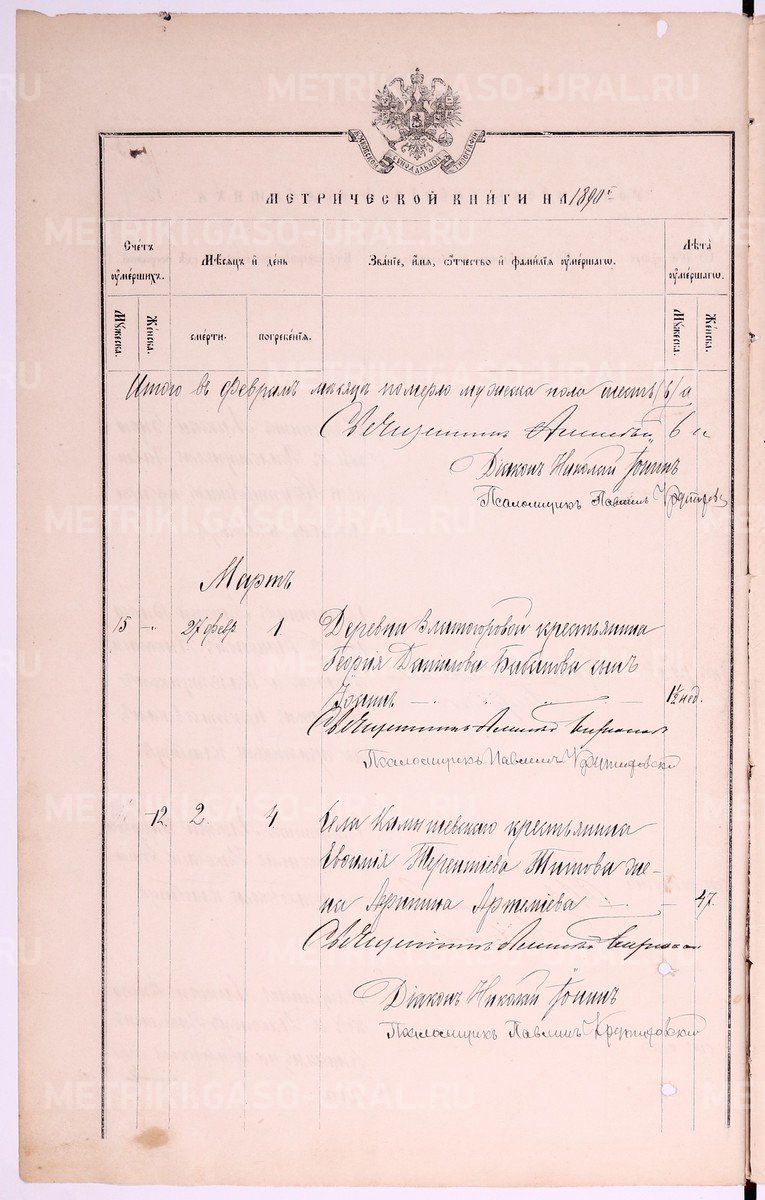 METRIKI.GASO-URAL.RU
МЕТРИ́ЧЕСКОЙ КНИ́ГИ НА 1890 г.
Счетъ ᲂу҆ме́ршихъ.
Мѣ́сяцъ и҆ де́нь
Зва́нїе, и҆́мя, ѻ҆́тчество и҆ фами́лїя ᲂу҆ме́ршагѡ.
Лѣ́та ᲂу҆ме́ршагѡ.
Мꙋ́жеска.
Же́нска.
сме́рти.
погребе́нїя.
Мꙋ́жеска.
Же́нска.
Итого въ Февралѣ мѣсяцѣ померло мужеска пола шесть /6/ а
Священникъ Алексѣй
Діаконъ Николай Іонинъ
Псаломщикъ Павлинъ
Мартъ
15 - 27 февр 1. Деревни крестьянина
Георгія Данилова сынъ
Іоаннъ 1½ нед.
Священникъ Алексѣй
Псаломщикъ Павлинъ
12. 2. 4. Села Камышевскаго крестьянина
Евѳимія Терентіева Титова же-
на Агрипина Артеміева 47.
Священникъ Алексѣй
Діаконъ Николай Іонинъ
Псаломщикъ Павлинъ